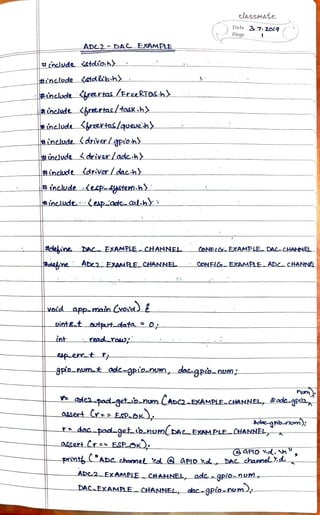 classmate
Date 3.7.2019
Page 1
ADC2 - DAC EXAMPLE
#include <stdio.h>
#include <stdlib.h>
#include <freertos/FreeRTOS.h>
#include <freertos/task.h>
#include <freertos/queue.h>
#include <driver/gpio.h>
#include <driver/adc.h>
#include <driver/dac.h>
#include <esp_system.h>
#include <esp_adc_cal.h>
#define DAC_EXAMPLE_CHANNEL CONFIG_EXAMPLE_DAC_CHANNEL
#define ADC2_EXAMPLE_CHANNEL CONFIG_EXAMPLE_ADC_CHANNEL
void app_main (void) {
uint8_t output_data = 0;
int read_raw;
esp_err_t r;
gpio_num_t adc_gpio_num, dac_gpio_num;
r = adc2_pad_get_io_num (ADC2_EXAMPLE_CHANNEL, &adc_gpio_
num);
assert (r == ESP_OK);
&dac_gpio_num);
r = dac_pad_get_io_num (DAC_EXAMPLE_CHANNEL,
assert (r == ESP_OK);
@ GPIO %d.\n",
printf ("ADC channel %d @ GPIO %d, DAC channel %d
ADC2_EXAMPLE_CHANNEL, adc_gpio_num,
DAC_EXAMPLE_CHANNEL, dac_gpio_num);